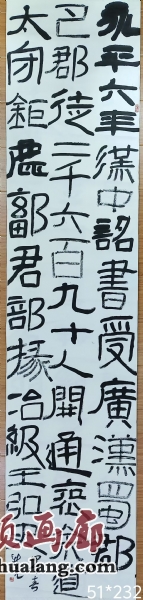 永平六年漢中詔書受廣漢蜀郡
巴郡徒二千六百九十人開通褒余道
太守鉅鹿鄐君部掾冶級王弘
画廊
hualang.com
51*232